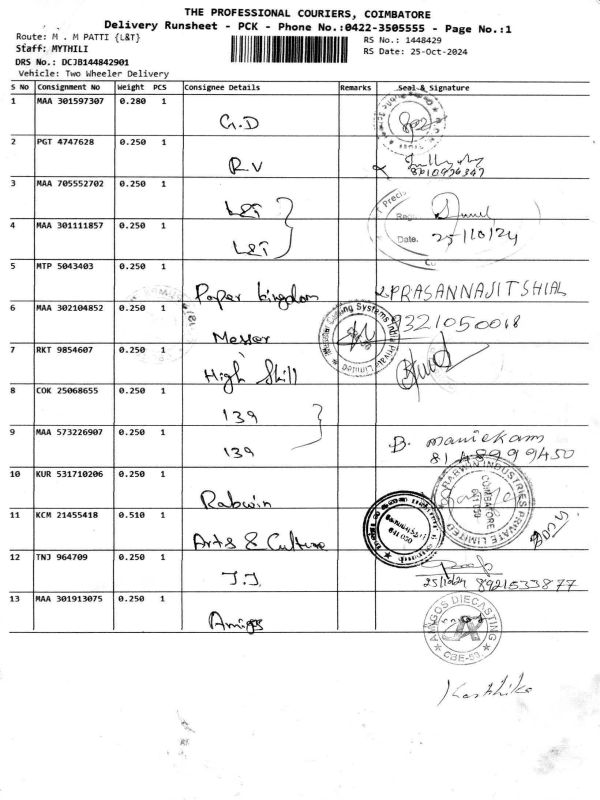 THE PROFESSIONAL COURIERS, COIMBATORE
Delivery Runsheet - PCK - Phone No.:0422-3505555 - Page No.:1
Route: M . M PATTI {L&T}
RS No.: 1448429
Staff: MYTHILI
RS Date: 25-Oct-2024
DRS No.: DCJB144842901
Vehicle: Two Wheeler Delivery
S No Consignment No Weight PCS Consignee Details Remarks Seal & Signature
1 MAA 301597307 0.280 1
G.D
2 PGT 4747628 0.250 1
R.V
3 MAA 705552702 0.250 1
L&T
Regn
4 MAA 301111857 0.250 1
L&T
Date. 25/10/24
5 MTP 5043403 0.250 1
Paper kingdom PRASANNAJIT SHIAL
6 MAA 302104852 0.250 1
Messer 9321050018
7 RKT 9854607 0.250 1
High Skill
8 COK 25068655 0.250 1
139
9 MAA 573226907 0.250 1
139 B. manickam
8148999450
10 KUR 531710206 0.250 1
Rabwin
RABWIN INDUSTRIES PRIVATE LIMITED
COIMBATORE
641 050
11 KCM 21455418 0.510 1
Arts & Culture
641 050
12 TNJ 964709 0.250 1
J.J 25/10/24 8921533877
13 MAA 301913075 0.250 1
Amigos
AMIGOS DIECASTING
CBE-50
Karthika